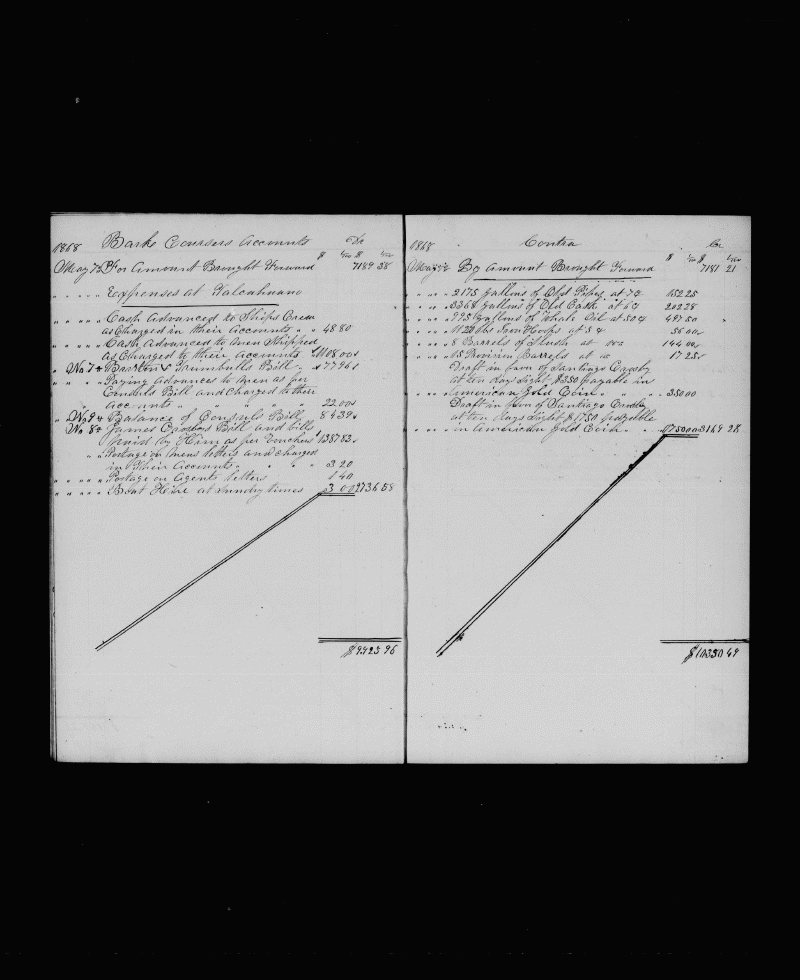 1868 Bark Coursers Accounts Dr
$ $
May 7th For Amount Brought Forward 7189 38
" " " " " Expenses at Talcahuano
" " " " " Cash Advanced to Ships Crew
as Charged in their Accounts " " 48 80
" " " " " Cash Advanced to Men Shipped
as Charged to their Accounts 1108 00
" No 7 Burton & Trumbulls Bill 779 61
" " " Paying Advances to Men as per
Consuls Bill and Charged to their
Accounts " " " " 22 00
" No 9 Balance of Consuls Bill 84 39
No 8 James Crosbys Bill and bills
paid by Him as per Vouchers
" " Postage on Mens letters and charged
in Their Accounts " " " " 3 20
" " " " " Postage on Agents letters 1 40
" " " " " Boat Hire at Sundry times 3 00 2736 58
$ 9925 96
1868 Contra Cr
$ $
May By Amount Brought Forward 7181 21
" " " " 2175 Gallons of Old Pipes at 7¢ 152 25
" " " " 3368 Gallons of Old Cask at 6¢ 202 28
" " " " 995 Gallons of Whale Oil at 50¢ 497 50
" " " " 1120 lbs Iron Hoops at 5¢ 56 00
" " " " 8 Barrels of Slush at 144 00
" " " " 15 Provision Barrels at 17 25
Draft in favor of Santiago Crosby
at ten days Sight $350 payable in
" " " " American Gold Coin " " " 350 00
Draft in favor of Santiago Crosby
at ten days Sight $1750 payable
" " " " in American Gold Coin " " 1750 00 3169 28
$ 10350 49